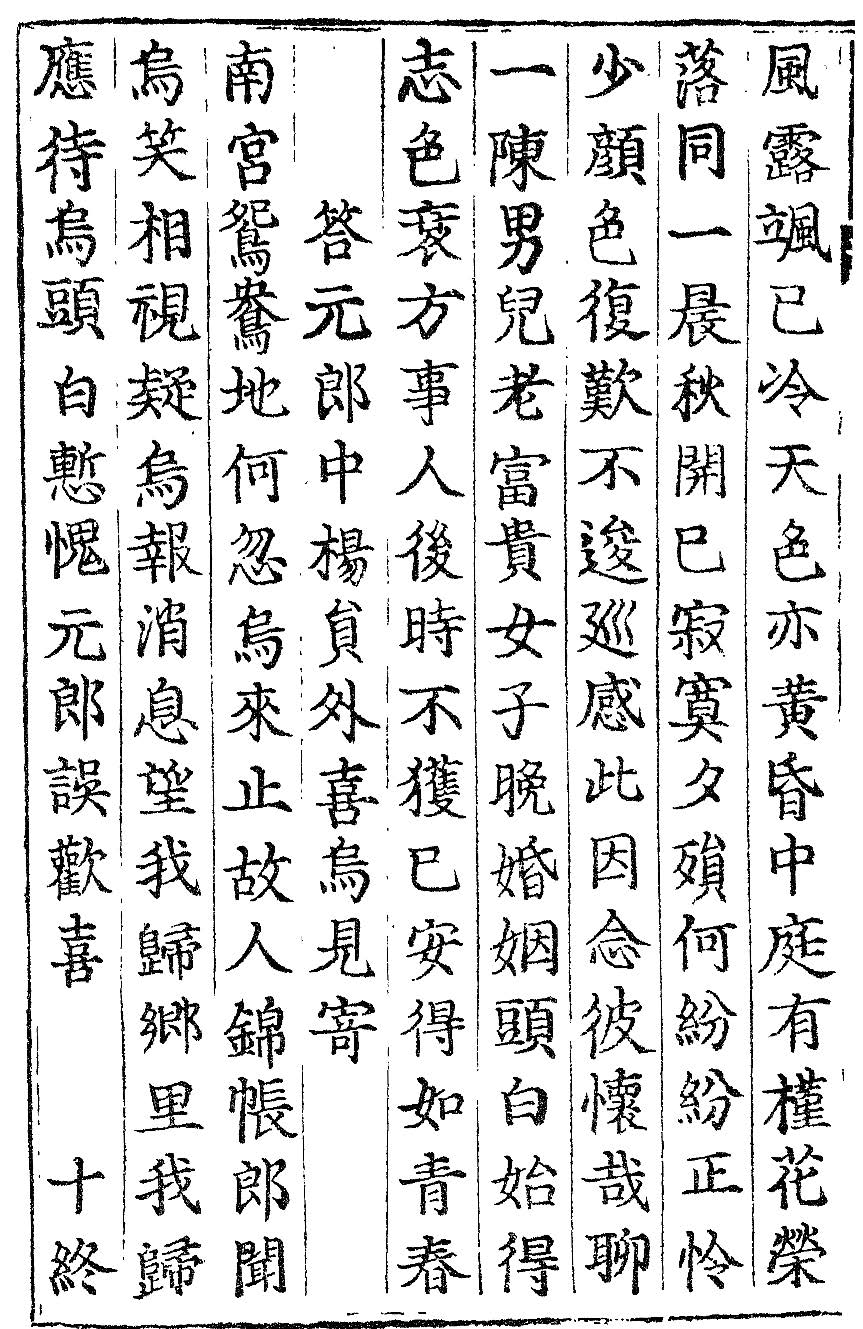 風露颯已冷天色亦黃昏中庭有槿花榮
落同一晨秋開已寂寞夕殞何紛紛正怜
少顔色復歎不逡廵感此因念彼懷哉聊
一陳男兒老富貴女子晚婚姻頭白始得
志色衰方事人後時不獲已安得如青春
答元郎中楊貟外喜烏見寄
南宮鴛鴦地何忽烏來止故人錦帳郎聞
烏笑相視疑烏報消息望我歸鄉里我歸
應待烏頭白慙愧元郎誤歡喜
十終